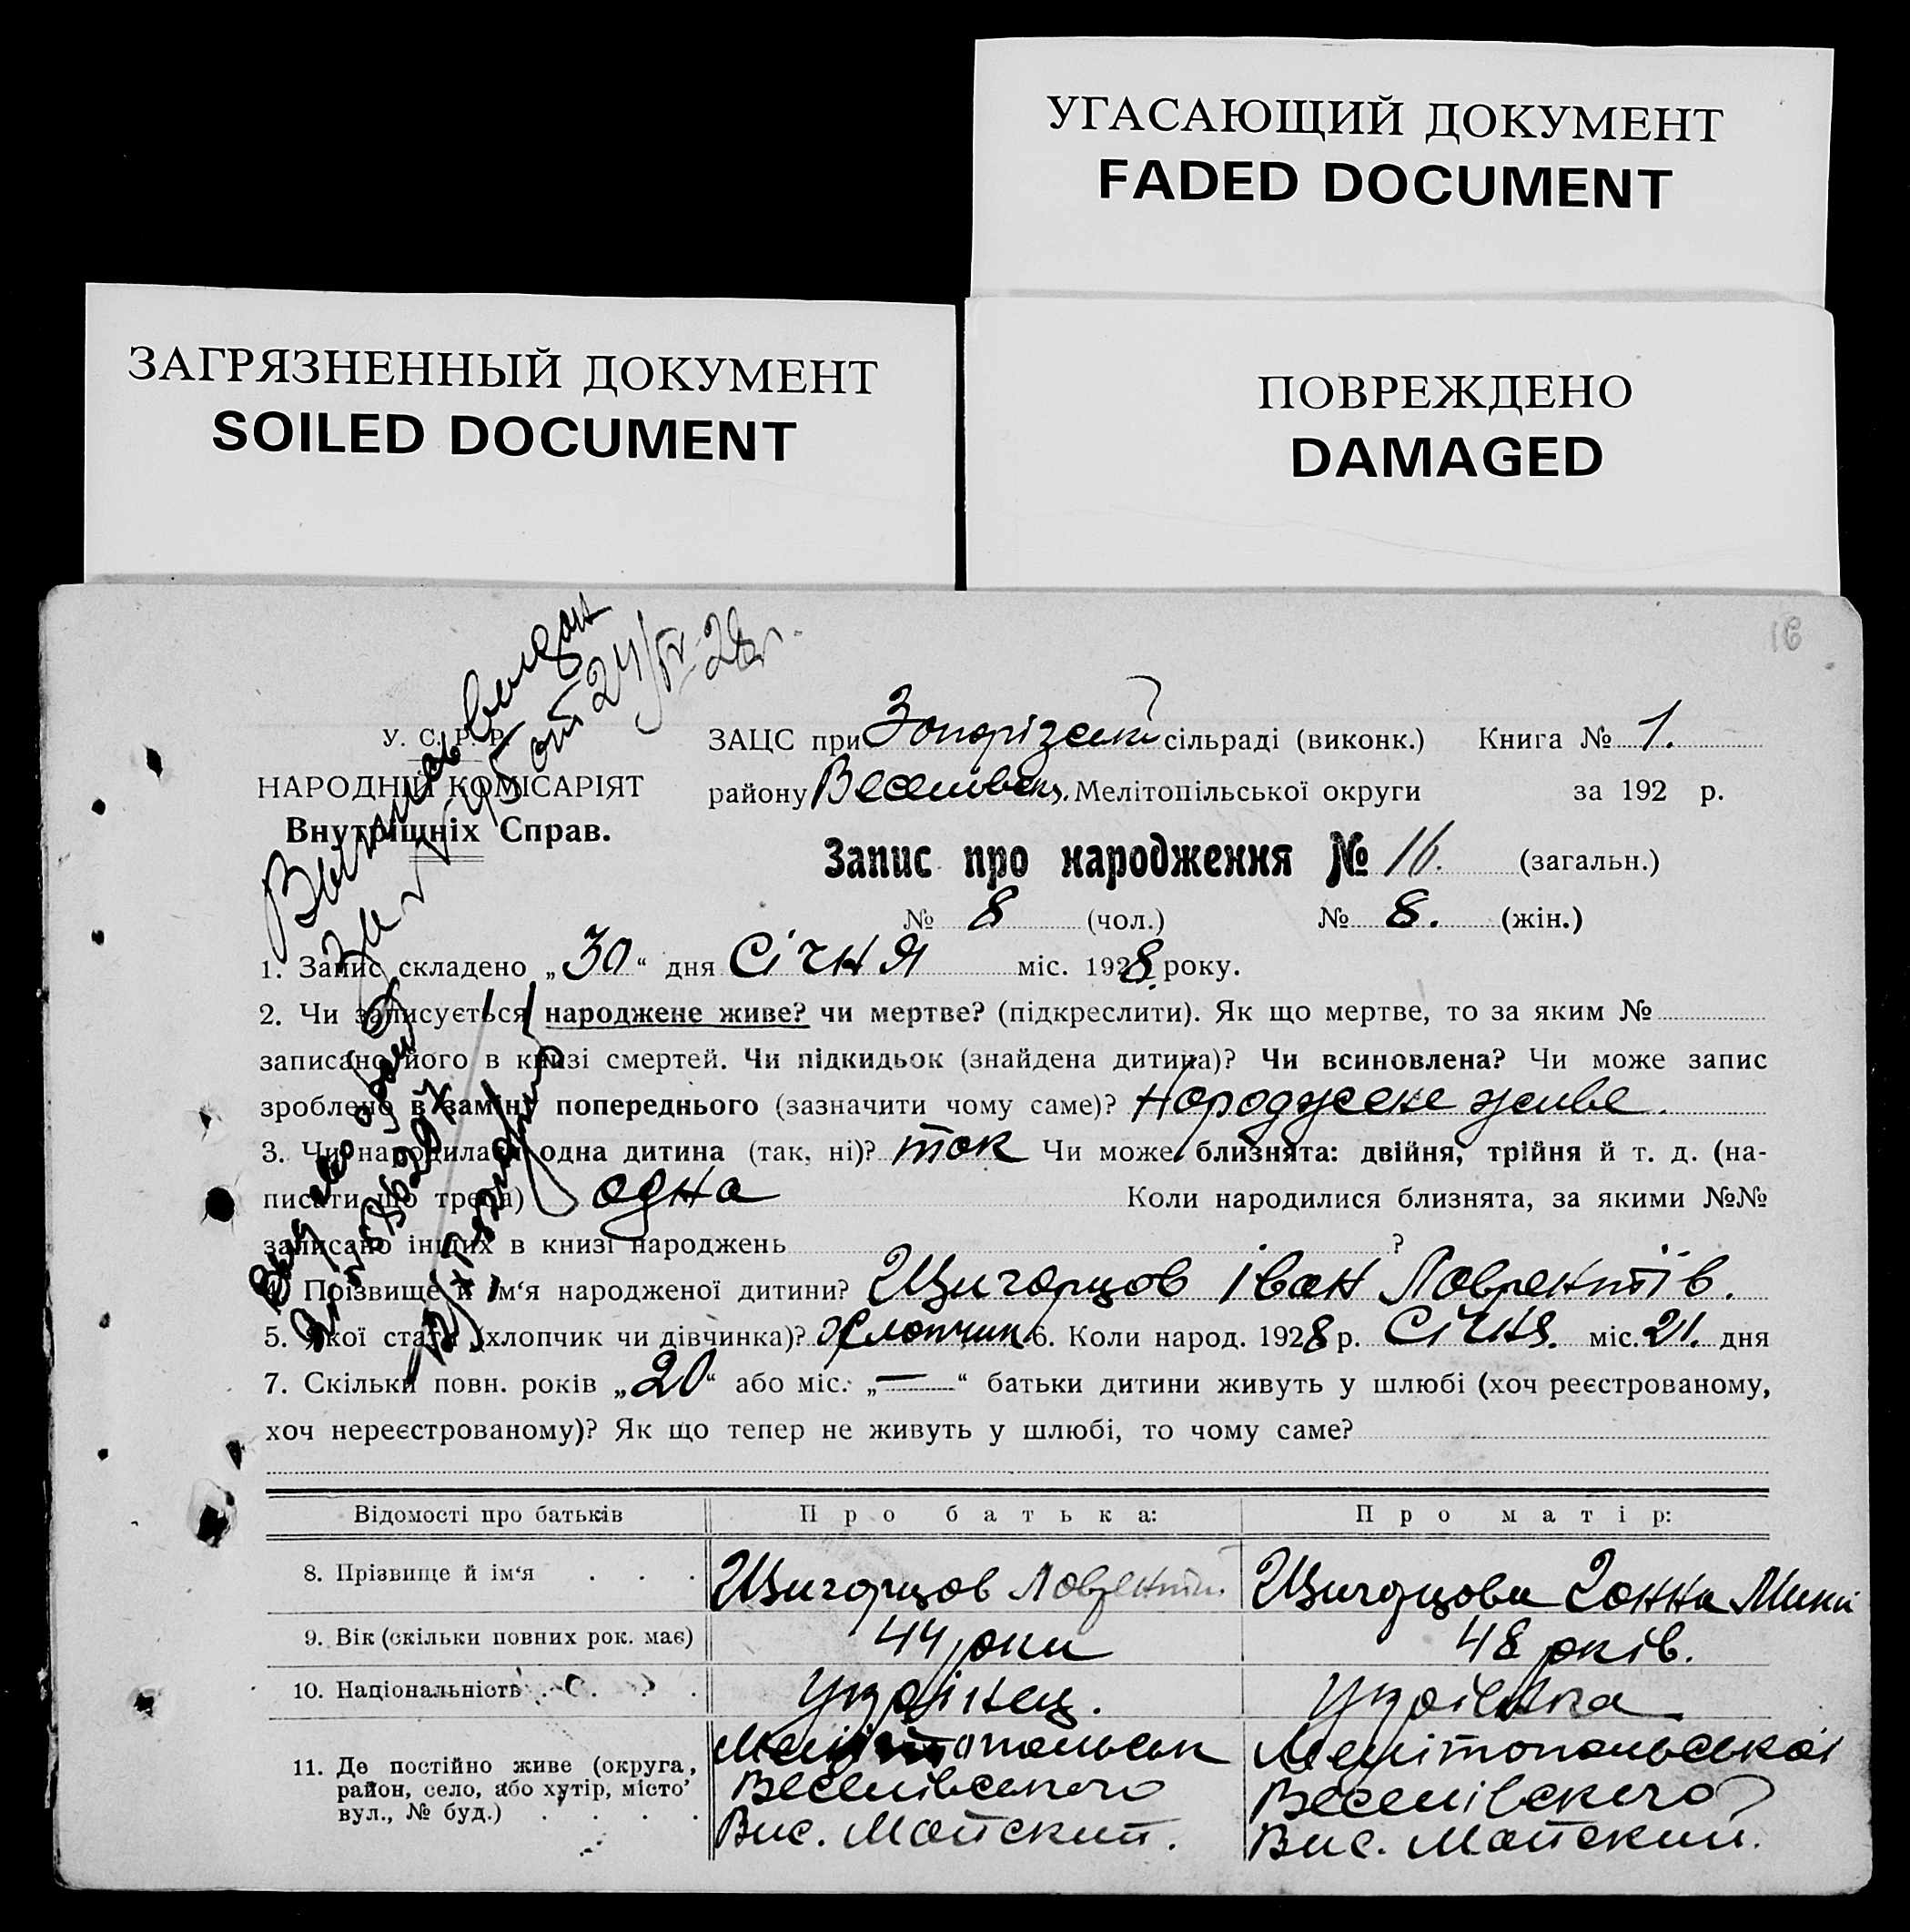 УГАСАЮЩИЙ ДОКУМЕНТ
FADED DOCUMENT
ЗАГРЯЗНЕННЫЙ ДОКУМЕНТ
SOILED DOCUMENT
ПОВРЕЖДЕНО
DAMAGED
16
У. С. Р. Р.
НАРОДНІЙ КОМІСАРІЯТ
Внутрішніх Справ.
ЗАЦС при сільраді (виконк.) Книга № 1.
району Мелітопільської округи за 192 р.
Запис про народження № 16. (загальн.)
№ 8 (чол.) № 8. (жін.)
1. Запис складено „30“ дня Січня міс. 1928 року.
2. Чи записується народжене живе? чи мертве? (підкреслити). Як що мертве, то за яким №
записано його в книзі смертей. Чи підкидьок (знайдена дитина)? Чи всиновлена? Чи може запис
зроблено в заміну попереднього (зазначити чому саме)? Народжене живе.
3. Чи народилась одна дитина (так, ні)? так Чи може близнята: двійня, трійня й т. д. (на-
писати що треба) одна Коли народилися близнята, за якими №№
записано інших в книзі народжень ?
4. Прізвище й ім‘я народженої дитини? Щигорцов Іван Лаврентіїв.
5. Якої стати (хлопчик чи дівчинка)? Хлопчик 6. Коли народ. 1928 р. Січня. міс. 21. дня
7. Скільки повн. років „20“ або міс. „—“ батьки дитини живуть у шлюбі (хоч реєстрованому,
хоч нереєстрованому)? Як що тепер не живуть у шлюбі, то чому саме?
Відомості про батьків Про батька: Про матір:
8. Прізвище й ім‘я . . . Щигорцов Щигорцова
9. Вік (скільки повних рок. має) 44 роки 48 років.
10. Національність . . . . Українец. Українка
11. Де постійно живе (округа, район, село, або хутір, місто вул., № буд.) . . . .
Веселівского Веселівского
Вис. Майский. Вис. Майский.